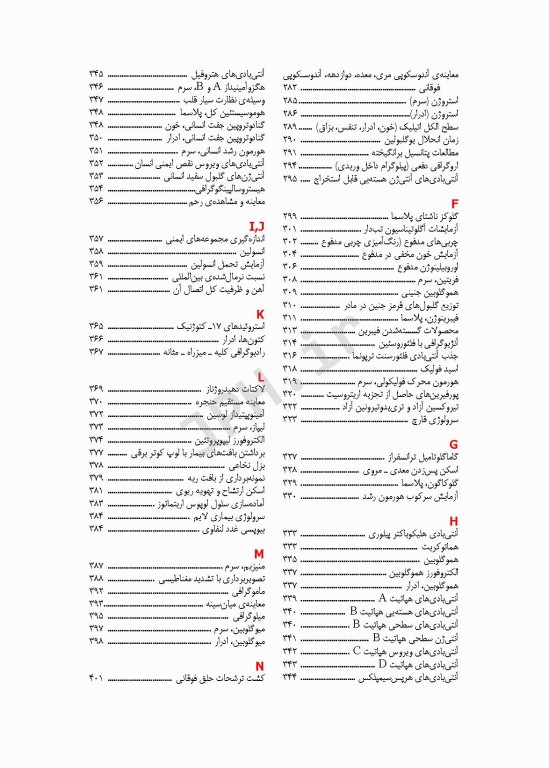 معاینه‌ی آندوسکوپی مری، معده، دوازدهه، آندوسکوپی
فوقانی ........ ۲۸۲
استروژن (سرم) ........ ۲۸۵
استروژن (ادرار) ........ ۲۸۶
سطح الکل اتیلیک (خون، ادرار، تنفس، بزاق) ........ ۲۸۹
زمان انحلال یوگلبولین ........ ۲۹۰
مطالعات پتانسیل برانگیخته ........ ۲۹۱
اروگرافی دفعی (پیلوگرام داخل وریدی) ........ ۲۹۴
آنتی‌بادی‌های آنتی‌ژن هسته‌یی قابل استخراج ........ ۲۹۵
F
گلوکز ناشتای پلاسما ........ ۲۹۹
آزمایشات آگلوتیناسیون تب‌دار ........ ۳۰۱
چربی‌های مدفوع (رنگ‌آمیزی چربی مدفوع ........ ۳۰۲
آزمایش خون مخفی در مدفوع ........ ۳۰۴
اوروبیلینوژن مدفوع ........ ۳۰۶
فریتین، سرم ........ ۳۰۸
هموگلوبین جنینی ........ ۳۰۹
توزیع گلبول‌های قرمز جنین در مادر ........ ۳۱۰
فیبرینوژن، پلاسما ........ ۳۱۱
محصولات گسسته‌شدن فیبرین ........ ۳۱۳
آنژیوگرافی با فلئوروسئین ........ ۳۱۴
جذب آنتی‌بادی فلئورسنت ترپونما ........ ۳۱۶
اسید فولیک ........ ۳۱۸
هورمون محرک فولیکولی، سرم ........ ۳۱۹
پورفیرین‌های حاصل از تجزیه اریتروسیت ........ ۳۲۰
تیروکسین آزاد و تری‌یدوتیرونین آزاد ........ ۳۲۲
سرولوژی قارچ ........ ۳۲۳
G
گاماگلوتامیل ترانسفراز ........ ۳۲۷
اسکن پس‌زدن معدی ـ مروی ........ ۳۲۸
گلوکاگون، پلاسما ........ ۳۲۹
آزمایش سرکوب هورمون رشد ........ ۳۳۰
H
آنتی‌بادی هلیکوباکتر پیلوری ........ ۳۳۳
هماتوکریت ........ ۳۳۳
هموگلوبین ........ ۳۳۵
الکتروفورز هموگلوبین ........ ۳۳۷
هموگلوبین، ادرار ........ ۳۳۷
آنتی‌بادی‌های هپاتیت A ........ ۳۳۹
آنتی‌بادی‌های هسته‌یی هپاتیت B ........ ۳۴۰
آنتی‌بادی‌های سطحی هپاتیت B ........ ۳۴۰
آنتی‌ژن سطحی هپاتیت B ........ ۳۴۱
آنتی‌بادی‌های ویروس هپاتیت C ........ ۳۴۲
آنتی‌بادی‌های هپاتیت D ........ ۳۴۳
آنتی‌بادی‌های هرپس‌سیمپلکس ........ ۳۴۴
آنتی‌بادی‌های هتروفیل ........ ۳۴۵
هگزوآمینیداز A و B، سرم ........ ۳۴۶
وسیله‌ی نظارت سیار قلب ........ ۳۴۷
هوموسیستئین کل، پلاسما ........ ۳۴۸
گنادوتروپین جفت انسانی، خون ........ ۳۴۸
گنادوتروپین جفت انسانی، ادرار ........ ۳۵۰
هورمون رشد انسانی، سرم ........ ۳۵۱
آنتی‌بادی‌های ویروس نقص ایمنی انسان ........ ۳۵۲
آنتی‌ژن‌های گلبول سفید انسانی ........ ۳۵۳
هیستروسالپینگوگرافی ........ ۳۵۴
معاینه و مشاهده‌ی رحم ........ ۳۵۶
I,J
اندازه‌گیری مجموعه‌های ایمنی ........ ۳۵۷
انسولین ........ ۳۵۸
آزمایش تحمل انسولین ........ ۳۵۹
نسبت نرمال‌شده‌ی بین‌المللی ........ ۳۶۱
آهن و ظرفیت کل اتصال آن ........ ۳۶۱
K
استروئیدهای ۱۷ـ کتوژنیک ........ ۳۶۵
کتون‌ها، ادرار ........ ۳۶۶
رادیوگرافی کلیه ـ میزراه ـ مثانه ........ ۳۶۷
L
لاکتات دهیدروژناز ........ ۳۶۹
معاینه مستقیم حنجره ........ ۳۷۰
آمینوپپتیداز لوسین ........ ۳۷۲
لیپاز، سرم ........ ۳۷۳
الکتروفورز لیپوپروتئین ........ ۳۷۴
برداشتن بافت‌های بیمار با لوپ کوتر برقی ........ ۳۷۷
بزل نخاعی ........ ۳۷۸
نمونه‌برداری از بافت ریه ........ ۳۷۹
اسکن ارتشاح و تهویه ریوی ........ ۳۸۱
آماده‌سازی سلول لوپوس اریتماتوز ........ ۳۸۳
سرولوژی بیماری لایم ........ ۳۸۴
بیوپسی غدد لنفاوی ........ ۳۸۴
M
منیزیم، سرم ........ ۳۸۷
تصویربرداری با تشدید مغناطیسی ........ ۳۸۸
ماموگرافی ........ ۳۹۲
معاینه‌ی میان‌سینه ........ ۳۹۳
میلوگرافی ........ ۳۹۵
میوگلوبین، سرم ........ ۳۹۷
میوگلوبین، ادرار ........ ۳۹۸
N
کشت ترشحات حلق فوقانی ........ ۴۰۱